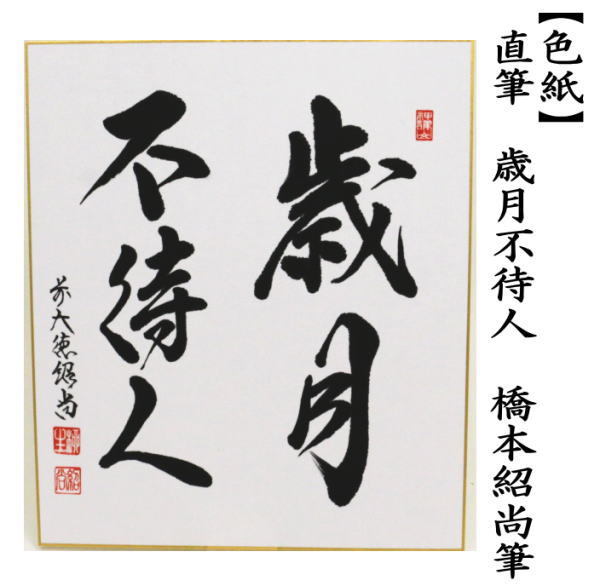 【色紙】
直筆 歳月不待人 橋本紹尚筆
歳月
不待人
前大徳紹尚